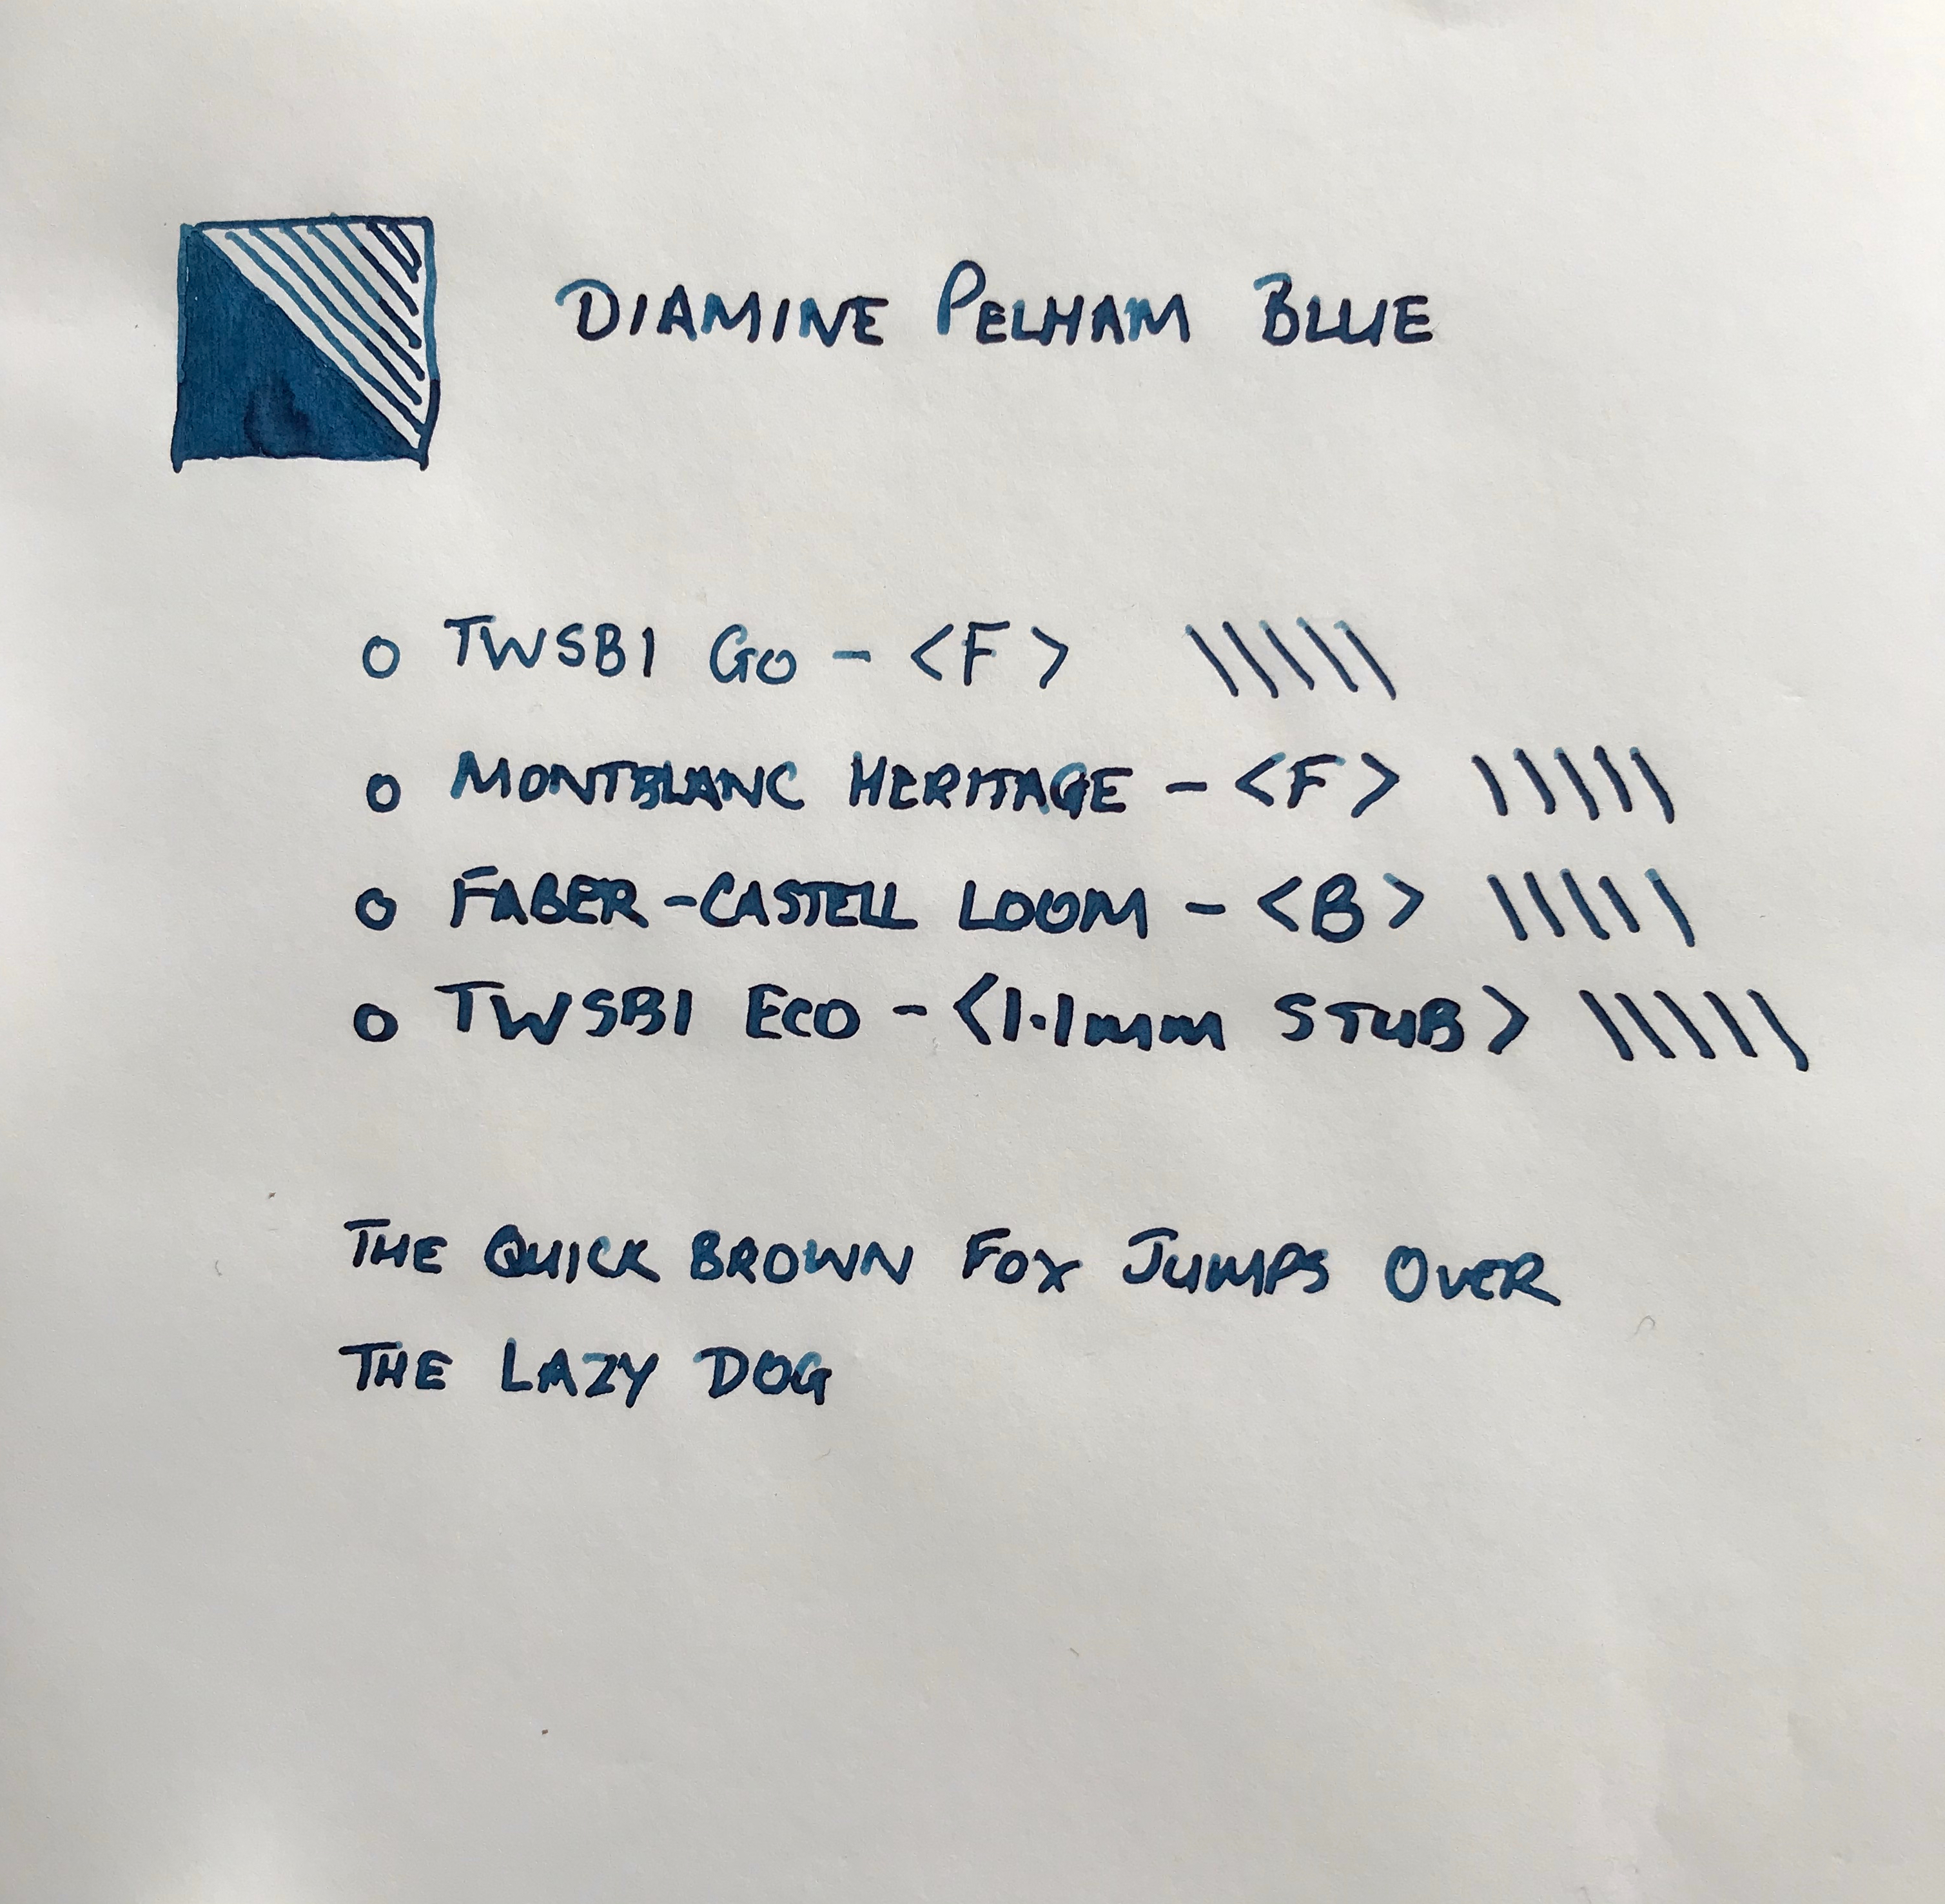 DIAMINE PELHAM BLUE
TWSBI GO - <F>
MONTBLANC HERITAGE - <F>
FABER-CASTELL LOOM - <B>
TWSBI ECO - <1.1mm STUB>
THE QUICK BROWN FOX JUMPS OVER
THE LAZY DOG